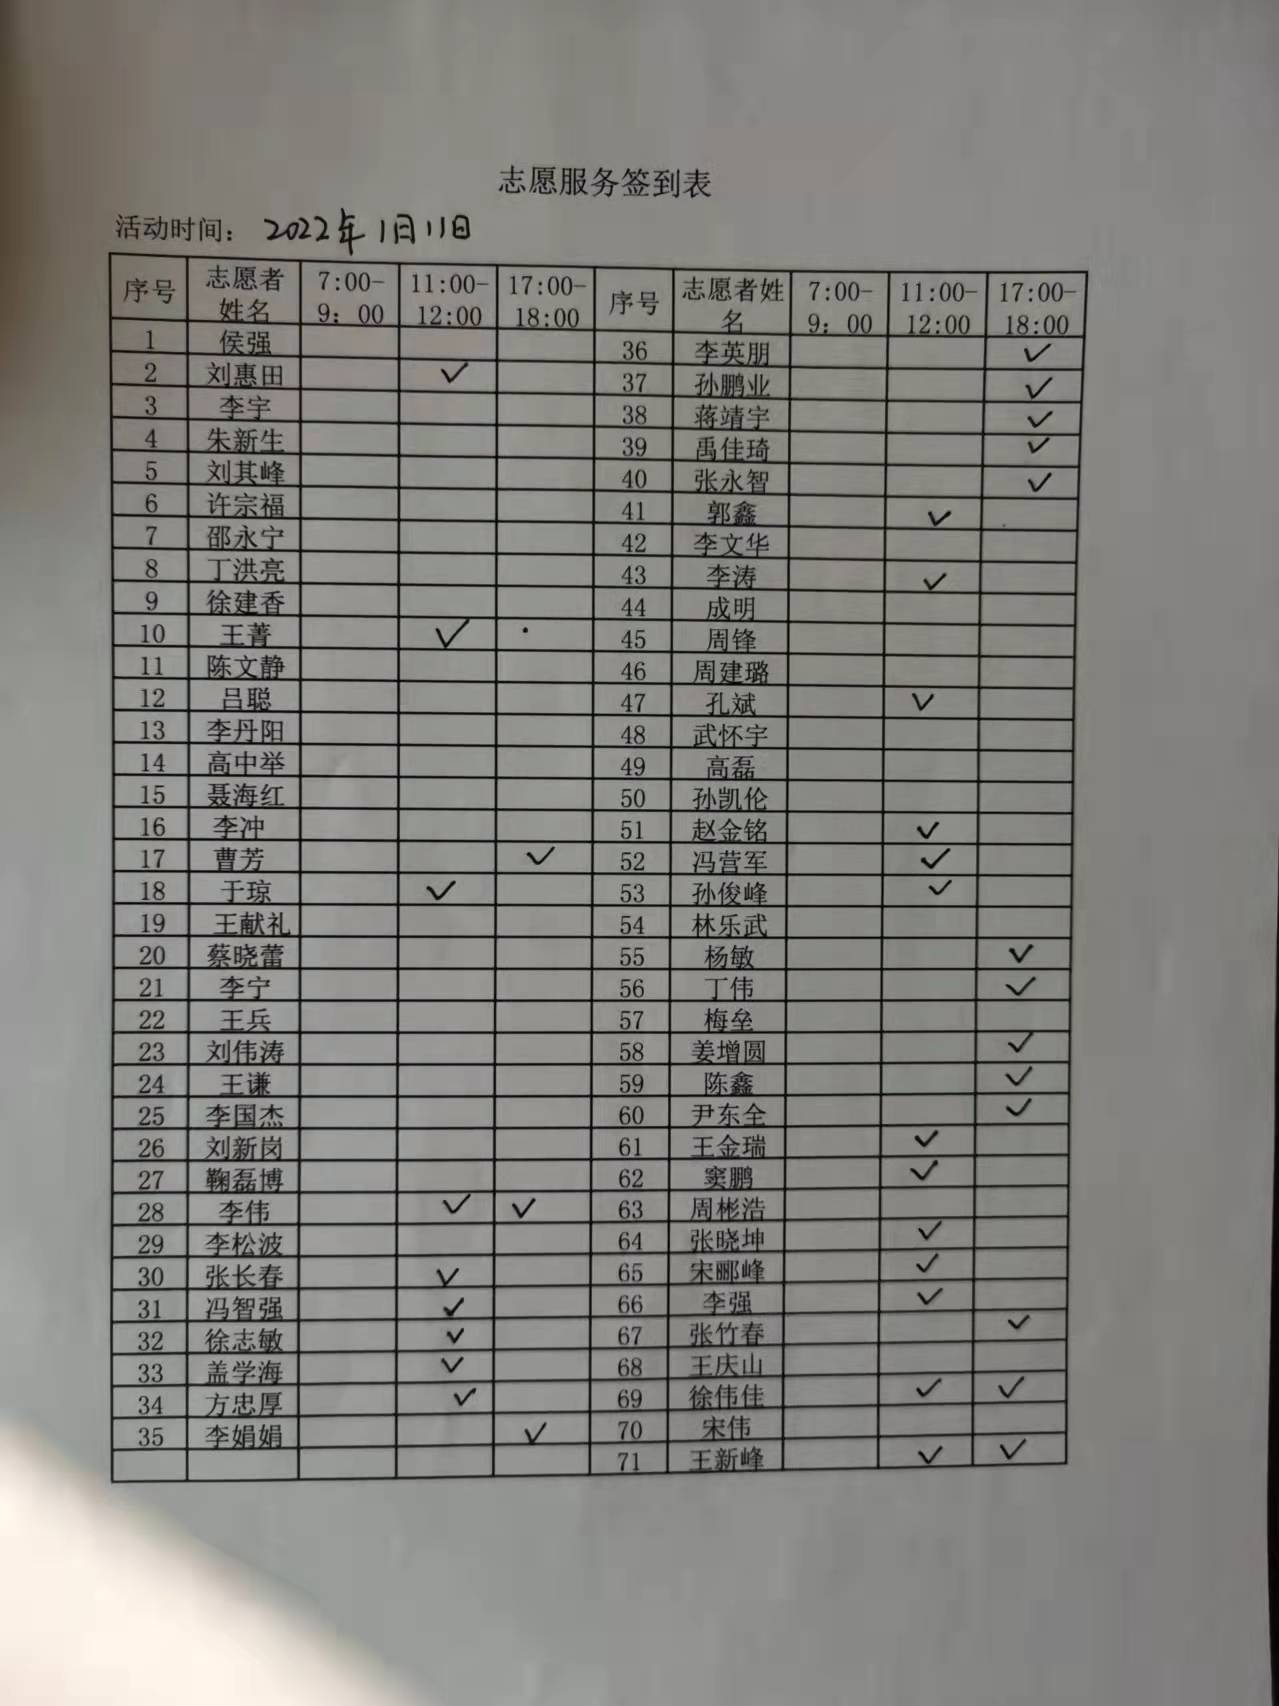 志愿服务签到表
活动时间：2022年1日11日
序号 志愿者姓名 7:00-9：00 11:00-12:00 17:00-18:00 序号 志愿者姓名 7:00-9：00 11:00-12:00 17:00-18:00
1 侯强 36 李英朋 ✓
2 刘惠田 ✓ 37 孙鹏业 ✓
3 李宇 38 蒋靖宇 ✓
4 朱新生 39 禹佳琦 ✓
5 刘其峰 40 张永智 ✓
6 许宗福 41 郭鑫 ✓
7 邵永宁 42 李文华
8 丁洪亮 43 李涛 ✓
9 徐建香 44 成明
10 王菁 ✓ 45 周锋
11 陈文静 46 周建璐
12 吕聪 47 孔斌 ✓
13 李丹阳 48 武怀宇
14 高中举 49 高磊
15 聂海红 50 孙凯伦
16 李冲 51 赵金铭 ✓
17 曹芳 ✓ 52 冯营军 ✓
18 于琼 ✓ 53 孙俊峰 ✓
19 王献礼 54 林乐武
20 蔡晓蕾 55 杨敏 ✓
21 李宁 56 丁伟 ✓
22 王兵 57 梅垒
23 刘伟涛 58 姜增圆 ✓
24 王谦 59 陈鑫 ✓
25 李国杰 60 尹东全 ✓
26 刘新岗 61 王金瑞 ✓
27 鞠磊博 62 窦鹏 ✓
28 李伟 ✓ ✓ 63 周彬浩
29 李松波 64 张晓坤 ✓
30 张长春 ✓ 65 宋郦峰 ✓
31 冯智强 ✓ 66 李强 ✓
32 徐志敏 ✓ 67 张竹春 ✓
33 盖学海 ✓ 68 王庆山
34 方忠厚 ✓ 69 徐伟佳 ✓ ✓
35 李娟娟 ✓ 70 宋伟
71 王新峰 ✓ ✓